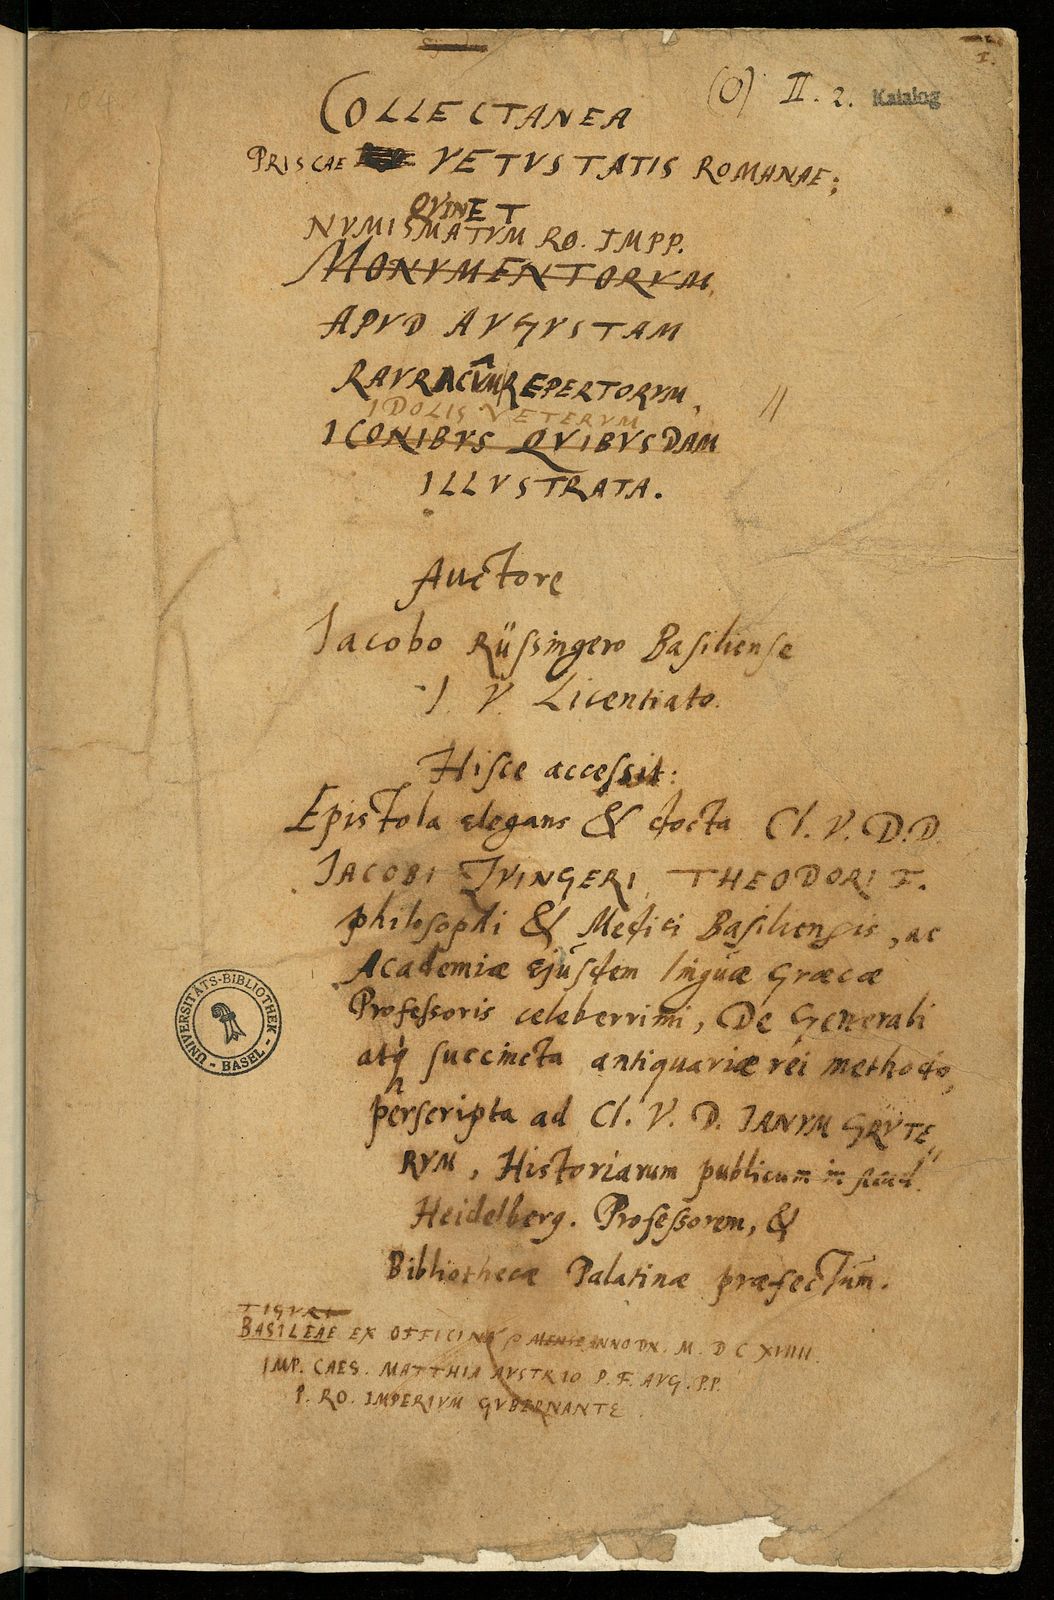 (O) II. 2. Katalog
I.
104
COLLECTANEA
PRISCAE VETVSTATIS ROMANAE;
QVIN ET
NVMISMATVM RO. IMPP.
MONVMENTORVM
APVD AVGVSTAM
RAVRACVM REPERTORVM,
IDOLIS VETERVM
ICONIBVS QVIBVSDAM
ILLVSTRATA.
Auctore
Iacobo Rüssingero Basiliense
I. V. Licentiato.
Hisce accessit:
Epistola elegans & docta Cl. V. D.D.
IACOBI ZVINGERI, THEODORI F.
philosophi & Medici Basiliensis, ac
Academiæ ejusdem linguæ Græcæ
Professoris celeberrimi, De Generali
atq succincta antiquariæ rei methodo,
perscripta ad Cl. V. D. IANVM GRVTE,,
RVM, Historiarum publicum in Acad.
Heidelberg. Professorem, &
Bibliothecæ Palatinæ præfectum.
TIGVRI
BASILEAE EX OFFICINA MENSE ANNO DN. M. D C XIIII.
IMP. CAES. MATTHIA AVSTRIO P. F. AVG. P.P.
P. RO. IMPERIVM GVBERNANTE.
UNIVERSITÄTS-BIBLIOTHEK - BASEL -